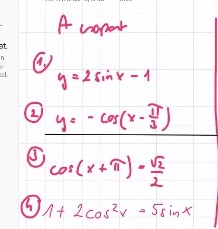 A csoport
1. y = 2 sin x - 1
2. y = - cos(x - π/3)
3. cos(x + π) = √2/2
4. 1 + 2cos²x = 5sinx